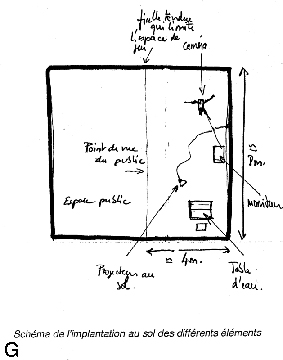 ficelle tendue
qui limite
l'espace de
jeu
caméra
Point de vue
du public
Espace public
≃ 8m.
moniteur
≃ 4m.
Projecteur au
sol.
Table
d'eau.
Schéma de l'implantation au sol des différents éléments
G